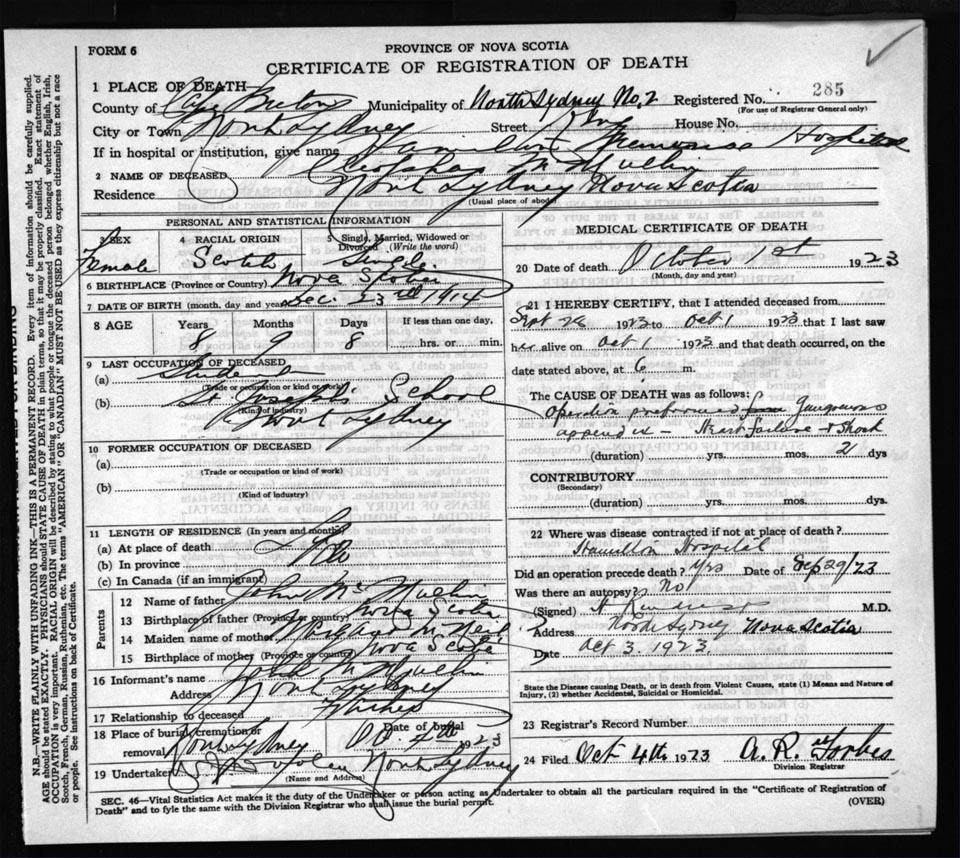 FORM 6
PROVINCE OF NOVA SCOTIA
CERTIFICATE OF REGISTRATION OF DEATH
1 PLACE OF DEATH
County of Cape Breton Municipality of North Sydney No. 2 Registered No. 285
(For use of Registrar General only)
City or Town North Sydney Street House No.
If in hospital or institution, give name Hamilton Memorial Hospital
2 NAME OF DECEASED McMullin
Residence North Sydney Nova Scotia
(Usual place of abode)
PERSONAL AND STATISTICAL INFORMATION
3 SEX 4 RACIAL ORIGIN 5 Single, Married, Widowed or
Divorced (Write the word)
Female Scotch Single
6 BIRTHPLACE (Province or Country) Nova Scotia
7 DATE OF BIRTH (month, day and year) Dec. 23rd 1914
8 AGE Years Months Days If less than one day,
8 9 8 hrs. or min.
9 LAST OCCUPATION OF DECEASED
(a) Student
(Trade or occupation or kind of work)
(b) St Joseph's School
(Kind of industry)
North Sydney
10 FORMER OCCUPATION OF DECEASED
(a)
(Trade or occupation or kind of work)
(b)
(Kind of industry)
11 LENGTH OF RESIDENCE (In years and months)
(a) At place of death Life
(b) In province
(c) In Canada (if an immigrant)
Parents
12 Name of father John McMullin
13 Birthplace of father (Province or country) Nova Scotia
14 Maiden name of mother Margaret McNeil
15 Birthplace of mother (Province or country) Nova Scotia
16 Informant's name John McMullin
Address North Sydney
17 Relationship to deceased Father
18 Place of burial, cremation or removal North Sydney Date of burial Oct 1923
19 Undertaker North Sydney
(Name and Address)
MEDICAL CERTIFICATE OF DEATH
20 Date of death October 1st 1923
(Month, day and year)
21 I HEREBY CERTIFY, that I attended deceased from
Sept 28 1923 to Oct 1 1923 that I last saw
her alive on Oct 1 1923 and that death occurred, on the
date stated above, at 6 m.
The CAUSE OF DEATH was as follows:
Operation preformed for Gangrenous
appendix Heart failure + Shock
(duration) yrs. mos. 2 dys
CONTRIBUTORY
(Secondary)
(duration) yrs. mos. dys.
22 Where was disease contracted if not at place of death?
Hamilton Hospital
Did an operation precede death? Yes Date of Sep 29/23
Was there an autopsy? No
(Signed) M.D.
Address North Sydney Nova Scotia
Date Oct 3. 1923
State the Disease causing Death, or in death from Violent Causes, state (1) Means and Nature of
Injury, (2) whether Accidental, Suicidal or Homicidal.
23 Registrar's Record Number
24 Filed Oct 4th 1923 A. R. Forbes
Division Registrar
SEC. 46—Vital Statistics Act makes it the duty of the Undertaker or person acting as Undertaker to obtain all the particulars required in the "Certificate of Registration of
Death" and to fyle the same with the Division Registrar who shall issue the burial permit.
(OVER)
N.B.—WRITE PLAINLY WITH UNFADING INK—THIS IS A PERMANENT RECORD. Every item of information should be carefully supplied.
AGE should be stated EXACTLY. PHYSICIANS should STATE CAUSE OF DEATH in plain terms, so that it may be properly classified. Exact statement of
OCCUPATION is very important. RACIAL ORIGIN will be described by stating to what people or tongue the deceased person belonged whether English, Irish,
Scotch, French, German, Russian, Ruthenian, etc. The terms "AMERICAN" OR "CANADIAN" MUST NOT BE USED as they express citizenship but not a race
or people. See instructions on back of Certificate.